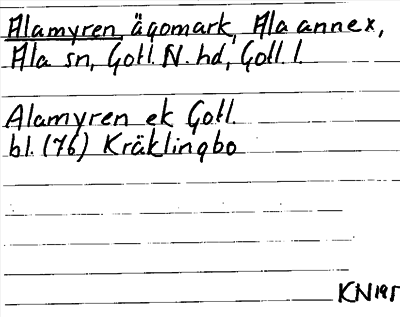 Alamyren, ägomark, Ala annex,
Ala sn, Gotl. N. hd, Gotl. l.
Alamyren ek Gotl.
bl. (76) Kräklingbo
KN195